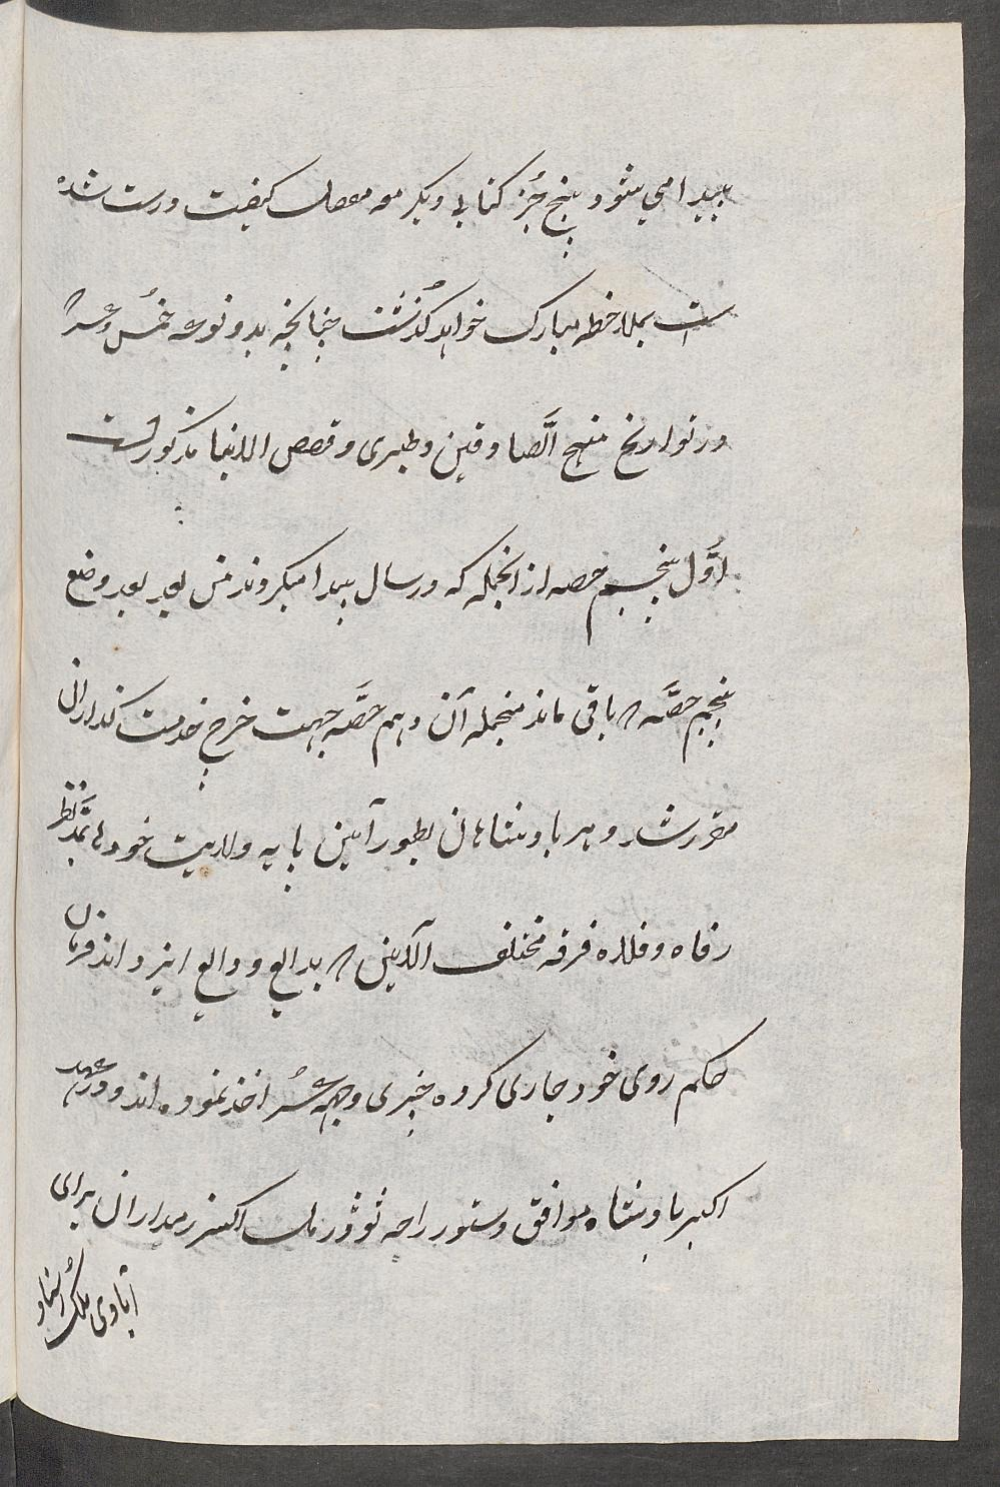 پیدا می شود پنج جُز کتابی دیگر مفصل کیفیت درست شده
است بملاحظه مبارک خواهد گذُشت چنانچه بدو نوعه خمُس و عشر
در تواریخ منهج الصَّادقین و طبری و قصص الانبیا مذکور است
اوَّل پنجم حصه از انجمله که در سال پیدا میکردند من بعد وضع
پنجم حصَّه باقی ماند منجمله آن دهم حصَّه جهت خرج خدمت گذارانی
مقرر شد و هر پادشاهان بطور آئین پایه ولایت خودها بمدَّنظر
رفاه و فلاه فرقه مختلف الآئین بدایع ودایع ایزد اند فرمان
حکم روی خود جاری کرده چیزی وجهه عشُر اخذ نموده اند و در عهد
اکبر پادشاه موافق دستور راجه تودرمل اکثر زمیداران برای
آبادی ملُک